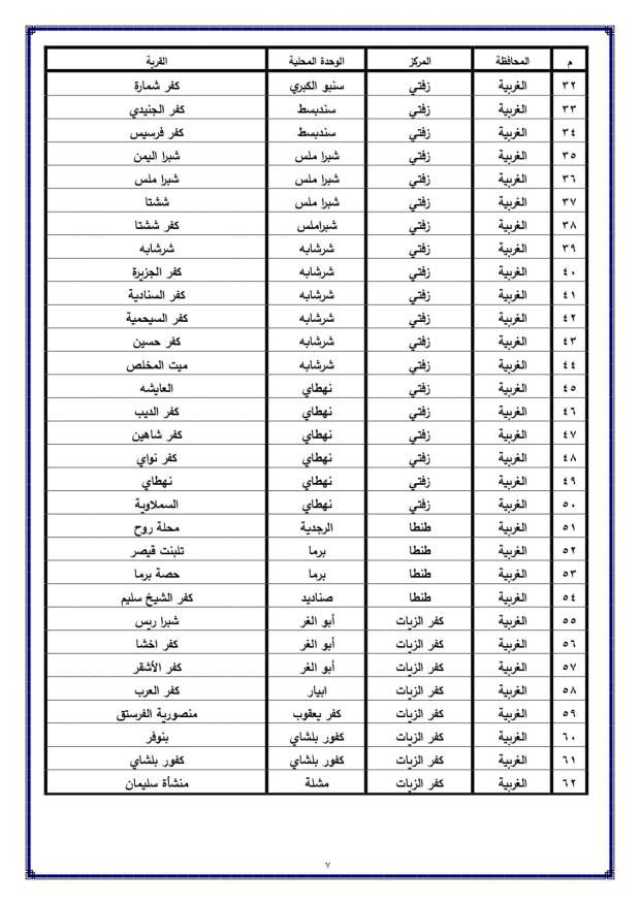 م المحافظة المركز الوحدة المحلية القرية
٣٢ الغربية زفتي سنبو الكبري كفر شمارة
٣٣ الغربية زفتي سندبسط كفر الجنيدي
٣٤ الغربية زفتي سندبسط كفر فرسيس
٣٥ الغربية زفتي شبرا ملس شبرا اليمن
٣٦ الغربية زفتي شبرا ملس شبرا ملس
٣٧ الغربية زفتي شبرا ملس ششتا
٣٨ الغربية زفتي شبراملس كفر ششتا
٣٩ الغربية زفتي شرشابه شرشابه
٤٠ الغربية زفتي شرشابه كفر الجزيرة
٤١ الغربية زفتي شرشابه كفر السنادية
٤٢ الغربية زفتي شرشابه كفر السيحمية
٤٣ الغربية زفتي شرشابه كفر حسين
٤٤ الغربية زفتي شرشابه ميت المخلص
٤٥ الغربية زفتي نهطاي العايشه
٤٦ الغربية زفتي نهطاي كفر الديب
٤٧ الغربية زفتي نهطاي كفر شاهين
٤٨ الغربية زفتي نهطاي كفر نواي
٤٩ الغربية زفتي نهطاي نهطاي
٥٠ الغربية زفتي نهطاي السملاوية
٥١ الغربية طنطا الرجدية محلة روح
٥٢ الغربية طنطا برما تلبنت قيصر
٥٣ الغربية طنطا برما حصة برما
٥٤ الغربية طنطا صناديد كفر الشيخ سليم
٥٥ الغربية كفر الزيات أبو الغر شبرا ريس
٥٦ الغربية كفر الزيات أبو الغر كفر اخشا
٥٧ الغربية كفر الزيات أبو الغر كفر الأشقر
٥٨ الغربية كفر الزيات ابيار كفر العرب
٥٩ الغربية كفر الزيات كفر يعقوب منصورية الفرستق
٦٠ الغربية كفر الزيات كفور بلشاي بنوفر
٦١ الغربية كفر الزيات كفور بلشاي كفور بلشاي
٦٢ الغربية كفر الزيات مشلة منشأة سليمان
٧